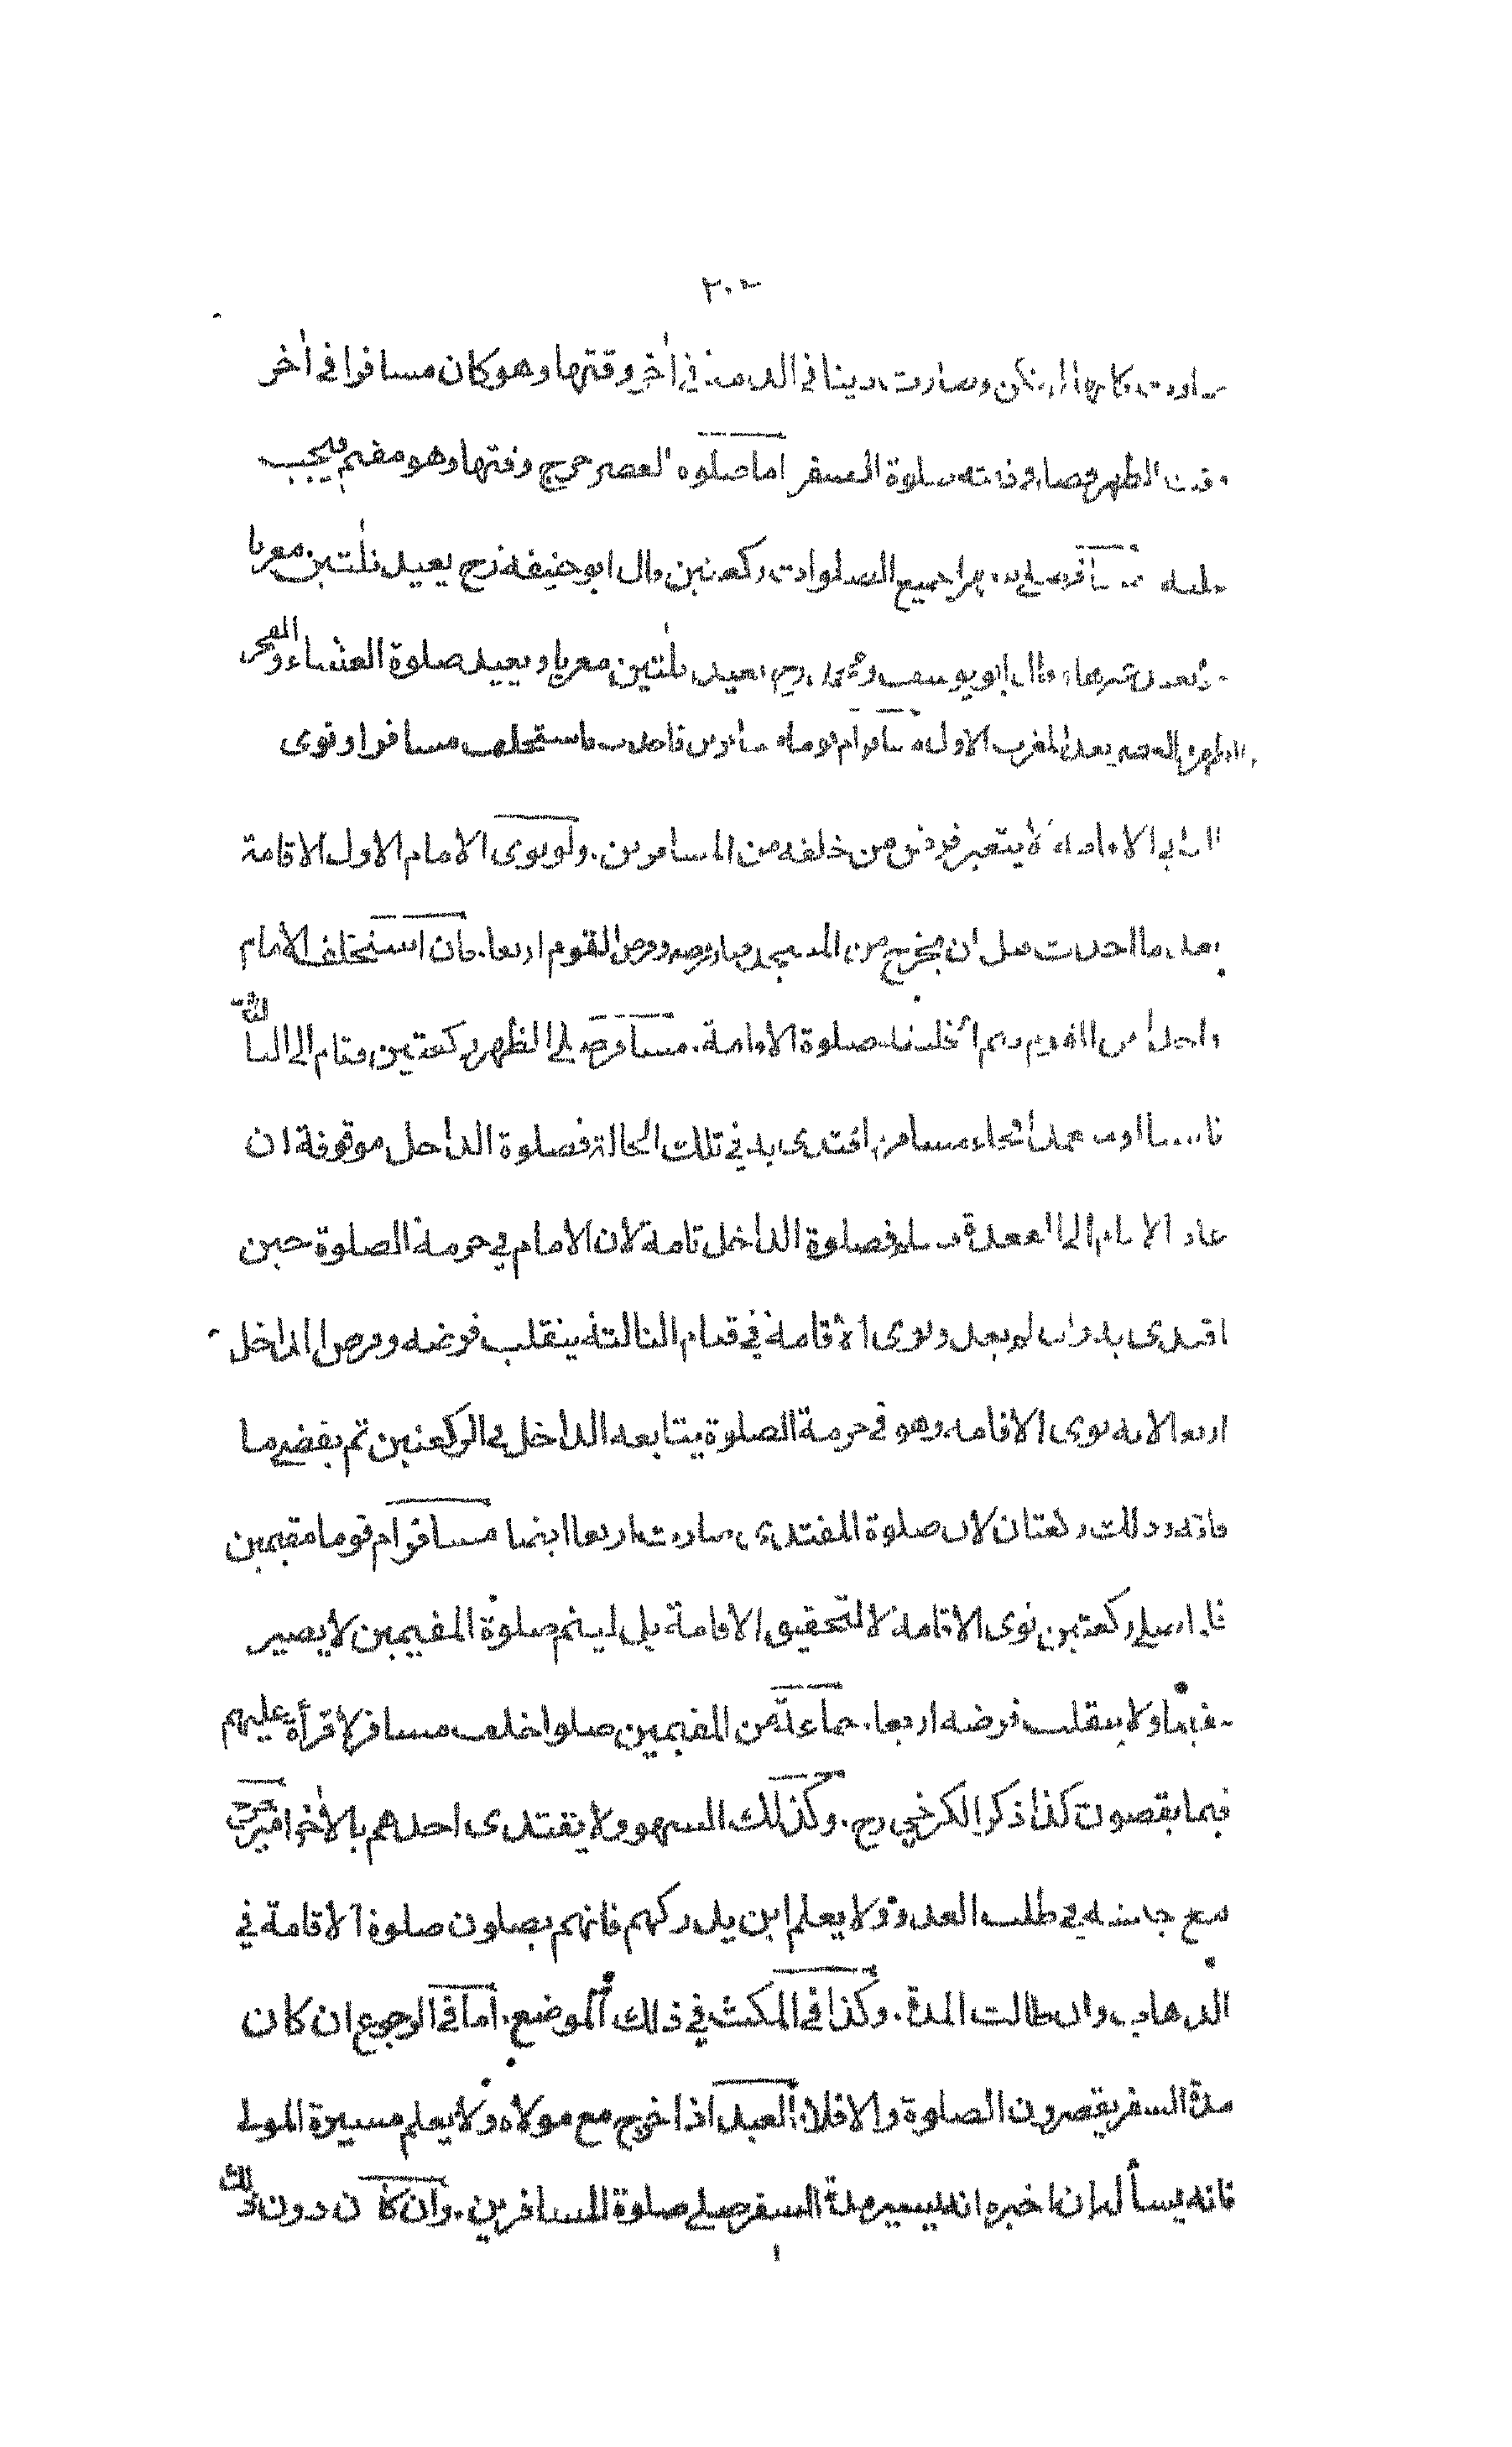 ٢٠٢
صارت كانها لم تكن وصارت دينا في الذمة في اٰخر وقتها وهو كان مسافرا في اٰخر
وقت الظهر فصار في ذمته صلوة السفر اما صلوه العصر خرج وقتها وهو مقيم فيجب
مسافر صلى شهرا جميع الصلوات ركعتين قال ابو حنيفه رح يعيد ثلٰثين مغربا
وقال ابو يوسف ومحمد رح يعيد ثلٰثين مغربا ويعيد صلوة العشاء والفجر
والظهر والعصر بعد المغرب الاول مسافر ام قوما مسافرين فاحدث فاستخلف مسافرا ونوى
الثاني الاقامة لا يتغير فرض من خلفه من المسافرين. ولو نوى الامام الاول الاقامة
بعد ما احدث قبل ان يخرج من المسجد صار فرضه وفرض القوم اربعا. فان استخلف الامام
واحدا من القوم صلوة الاقامة. مسافر صلى الظهر ركعتين وقام الى الثالثة
ناسيا او عمدا فجاء مسافر اقتدى به في تلك الحالة فصلوة الداخل موقوفة ان
عاد الامام الى القعدة وسلم فصلوة الداخل تامة لان الامام في حرمة الصلوة حين
اقتدى به وان لم يعد ونوى الاقامة في قيام الثالثة ينقلب فرضه وفرض الداخل
اربعا لانه نوى الاقامه وهو في حرمة الصلوة يتابعه الداخل في الركعتين ثم يقضي ما
فاته وذلك ركعتان لان صلوة المقتدي صارت اربعا ايضا مسافر ام قوما مقيمين
فلما صلى ركعتين نوى الاقامة لا لتحقيق الاقامة بل ليتم صلوة المقيمين لا يصير
مقيما ولا ينقلب فرضه اربعا. جماعة من المقيمين صلوا خلف مسافر لا قرأة عليهم
فيما يقضون كذا ذكر الكرخي رح. وكذلك السهو ولا يقتدى احدهم بالاٰخر امير خرج
مع جنده في طلب العدو ولا يعلم اين يدركهم فانهم يصلون صلوة الاقامة في
الذهاب وان طالت المدة. وكذا في المكث في ذلك الموضع. اما في الرجوع ان كان
مدة السفر يقصرون الصلوة والا فلا العبد اذا خرج مع مولاه ولا يعلم مسيرة المولى
فانه يسأله ان اخبره انه يسير مدة السفر صلى صلوة المسافرين. وان كان دون ذلك